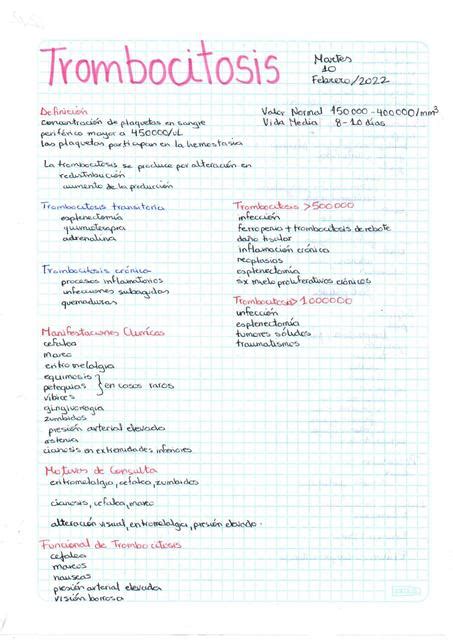 Trombocitosis
Martes
10
Febrero/2022
Definición
concentración de plaquetas en sangre
periférica mayor a 450000/uL
las plaquetas participan en la hemostasia
Valor Normal 150000-400000/mm³
Vida Media 8-10 días
La trombocitosis se produce por alteración en
redistribución
aumento de la producción
Trombocitosis transitoria
esplenectomía
quimioterapia
adrenalina
Trombocitosis crónica
procesos inflamatorios
infecciones subagudas
quemaduras
Trombocitosis >500000
infección
ferropenia + trombocitosis de rebote
daño tisular
inflamación crónica
neoplasias
esplenectomía
sx mielo proliferativos crónicos
Trombocitosis > 1000000
infección
esplenectomía
tumores sólidos
traumatismos
Manifestaciones Clínicas
cefalea
mareo
eritromelalgia
equimosis
petequias } en casos raros
víbices
gingivorragia
zumbidos
presión arterial elevada
astenia
cianosis en extremidades inferiores
Motivos de Consulta
eritromelalgia, cefalea, zumbidos
cianosis, cefalea, mareo
alteración visual, eritromelalgia, presión elevada.
Funcional de Trombocitosis
cefalea
mareos
nauseas
presión arterial elevada
visión borrosa